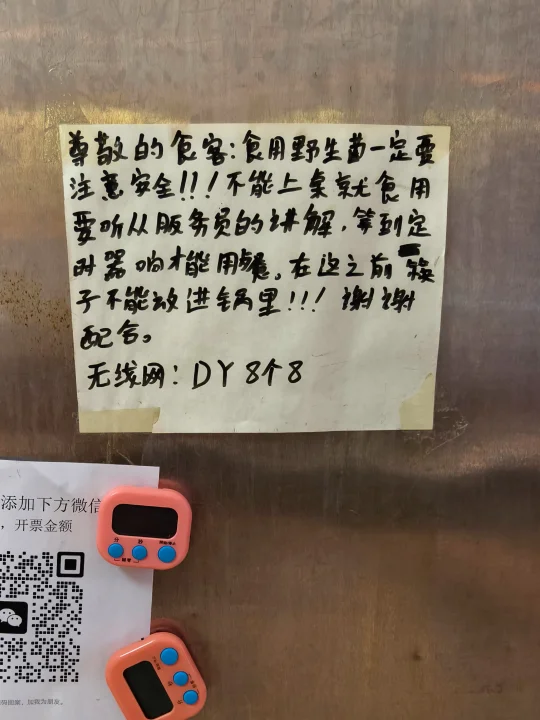 尊敬的食客:食用野生菌一定要
注意安全!!!不能上桌就食用
要听从服务员的讲解,等到定
时器响才能用餐。在这之前筷
子不能放进锅里!!!谢谢
配合。
无线网:DY8个8
添加下方微信
,开票金额
分 秒